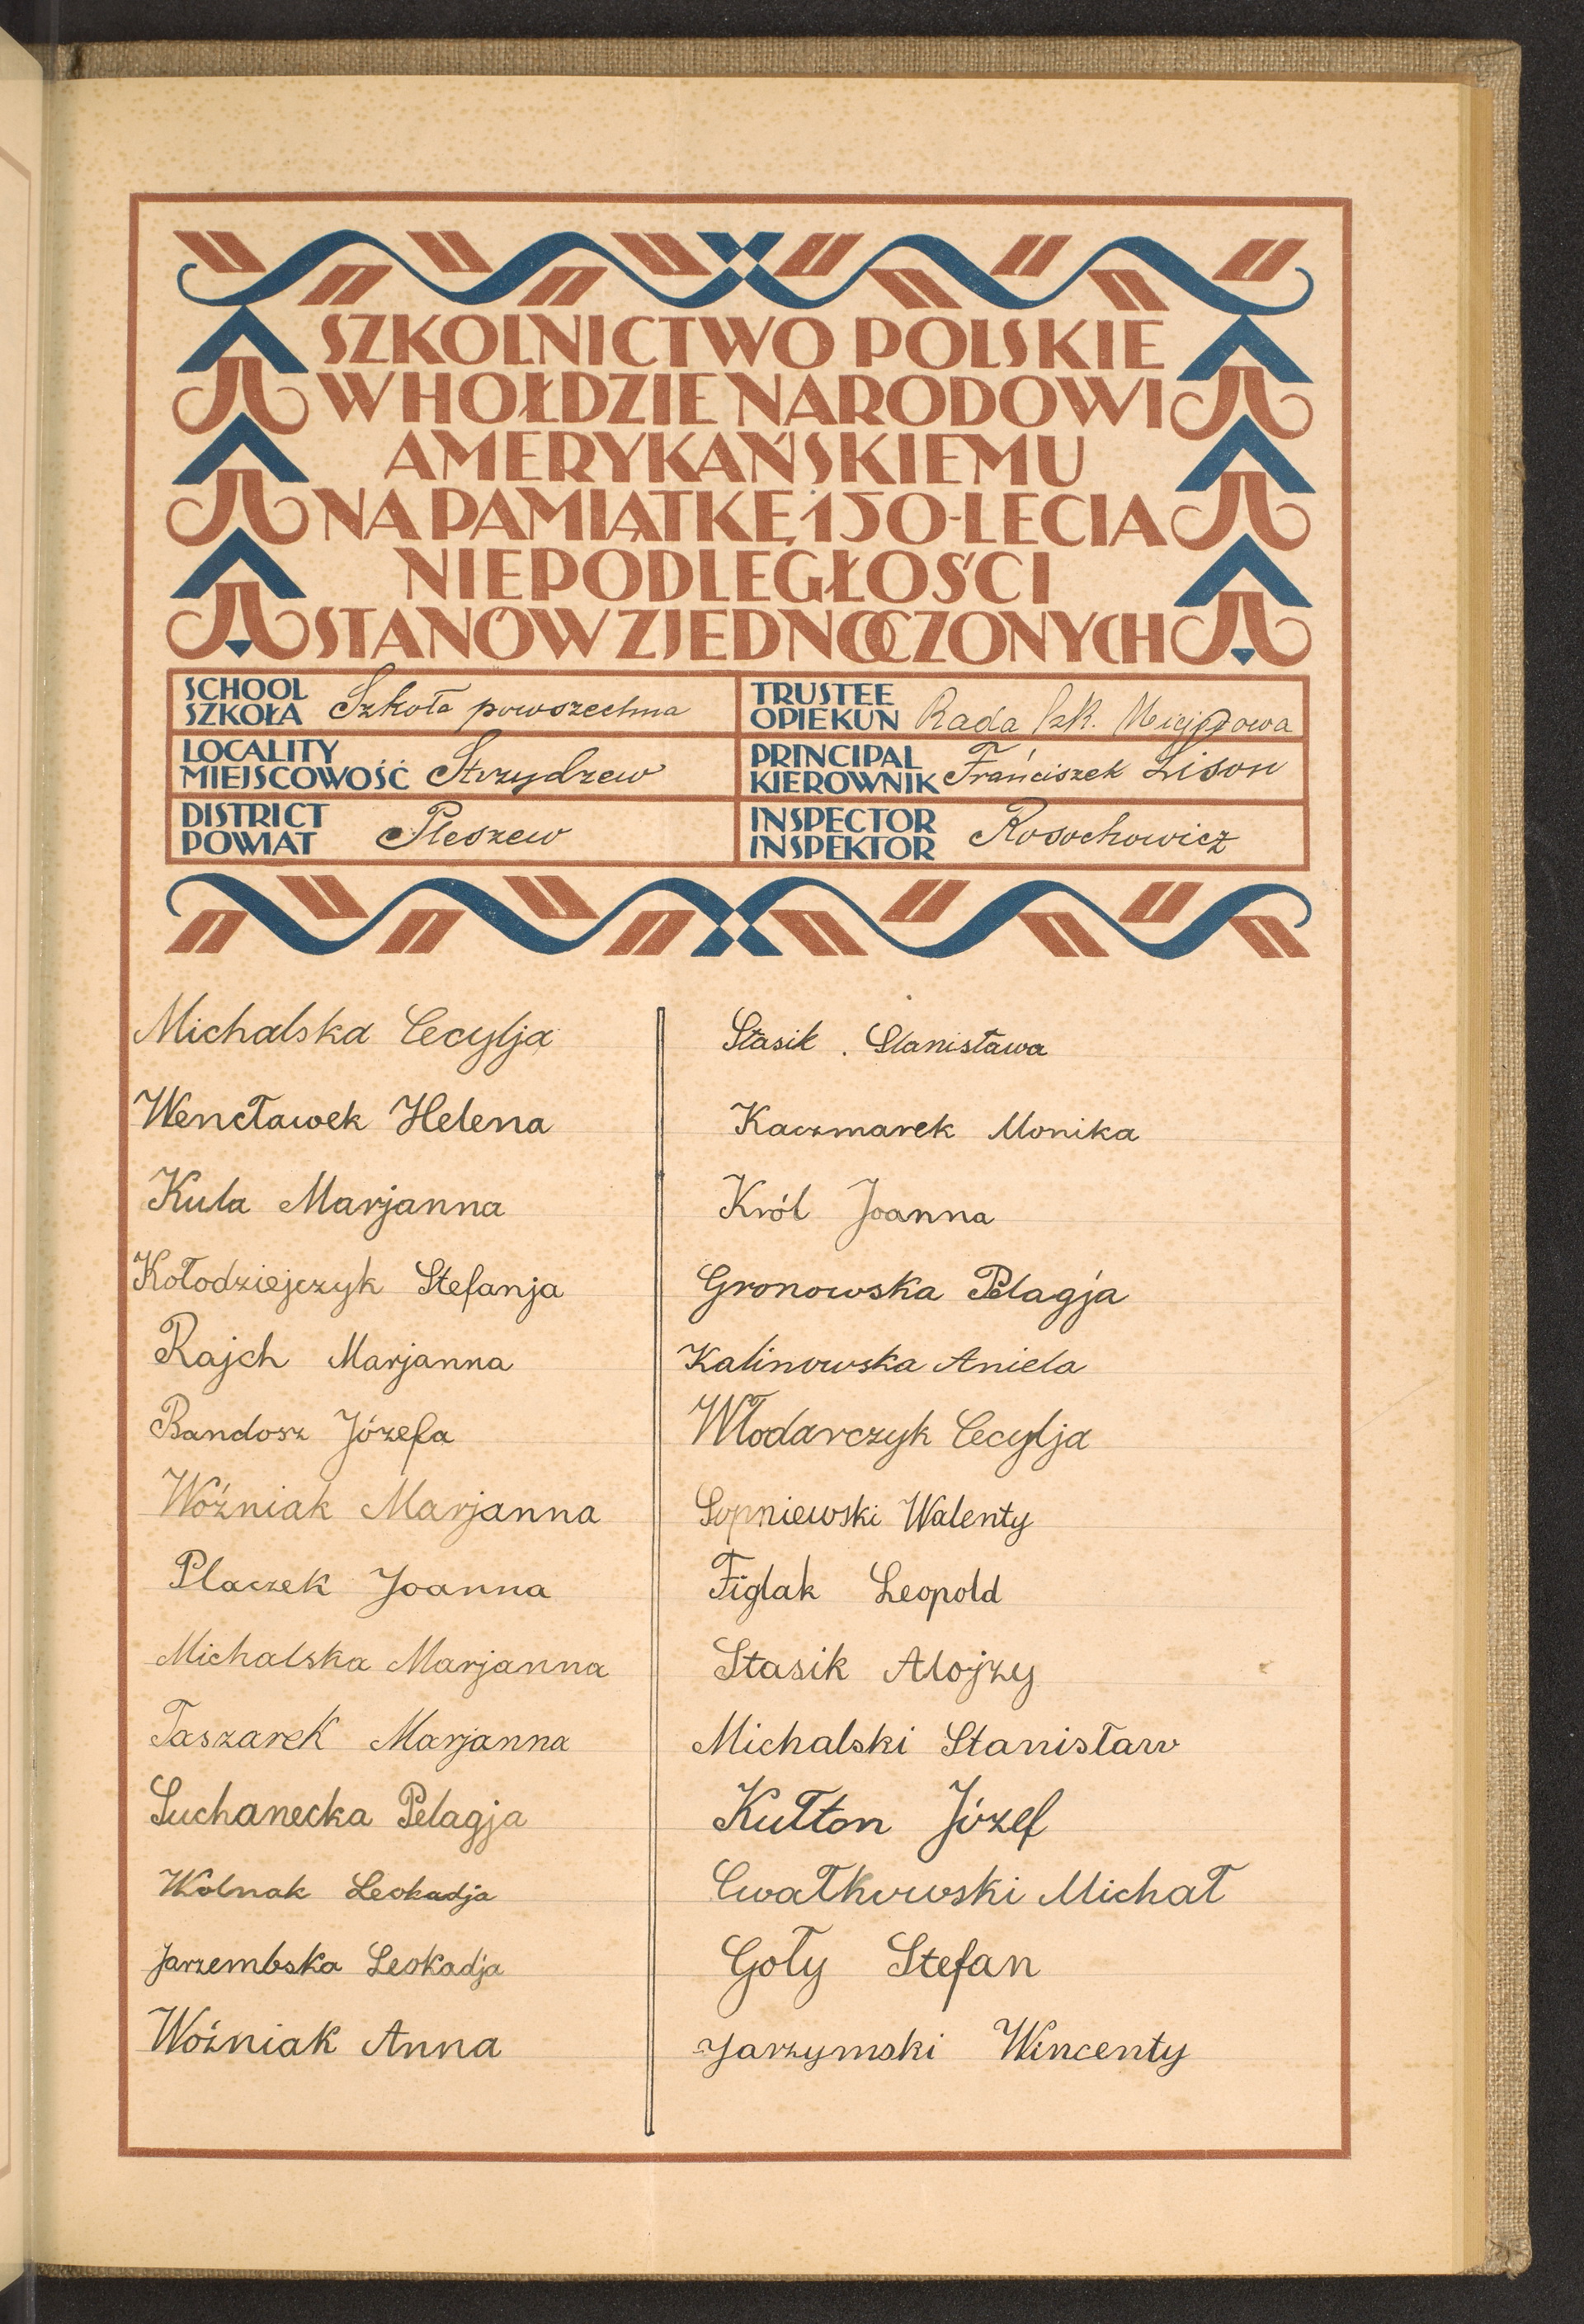 SZKOLNICTWO POLSKIE
W HOŁDZIE NARODOWI
AMERYKAŃSKIEMU
NA PAMIĄTKĘ 150-LECIA
NIEPODLEGŁOŚCI
STANÓW ZJEDNOCZONYCH
SCHOOL
SZKOŁA Szkoła powszechna
TRUSTEE
OPIEKUN Rada Szk. Miejscowa
LOCALITY
MIEJSCOWOŚĆ Strzydzew
PRINCIPAL
KIEROWNIK Franciszek Lison
DISTRICT
POWIAT Pleszew
INSPECTOR
INSPEKTOR Rosochowicz
Michalska Cecylja
Wencławek Helena
Kula Marjanna
Kołodziejczyk Stefanja
Rajch Marjanna
Bandosz Józefa
Woźniak Marjanna
Placzek Joanna
Michalska Marjanna
Taszarek Marjanna
Suchanecka Pelagja
Wolnak Leokadja
Jarzembska Leokadja
Woźniak Anna
Stasik Stanisława
Kaczmarek Monika
Król Joanna
Gronowska Pelagja
Kalinowska Aniela
Włodarczyk Cecylja
Sopniewski Walenty
Figlak Leopold
Stasik Alojzy
Michalski Stanisław
Kułton Józef
Cwałkowski Michał
Goły Stefan
Jarzymski Wincenty